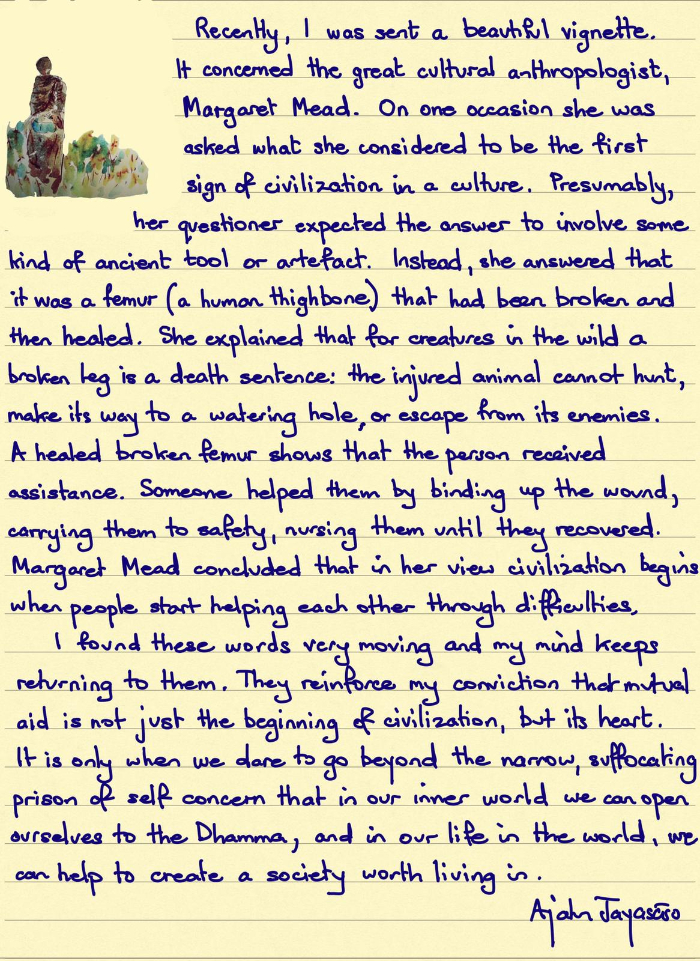 Recently, I was sent a beautiful vignette.
It concerned the great cultural anthropologist,
Margaret Mead. On one occasion she was
asked what she considered to be the first
sign of civilization in a culture. Presumably,
her questioner expected the answer to involve some
kind of ancient tool or artefact. Instead, she answered that
it was a femur (a human thighbone) that had been broken and
then healed. She explained that for creatures in the wild a
broken leg is a death sentence: the injured animal cannot hunt,
make its way to a watering hole, or escape from its enemies.
A healed broken femur shows that the person received
assistance. Someone helped them by binding up the wound,
carrying them to safety, nursing them until they recovered.
Margaret Mead concluded that in her view civilization begins
when people start helping each other through difficulties.
I found these words very moving and my mind keeps
returning to them. They reinforce my conviction that mutual
aid is not just the beginning of civilization, but its heart.
It is only when we dare to go beyond the narrow, suffocating
prison of self concern that in our inner world we can open
ourselves to the Dhamma, and in our life in the world, we
can help to create a society worth living in.
Ajahn Jayasāro